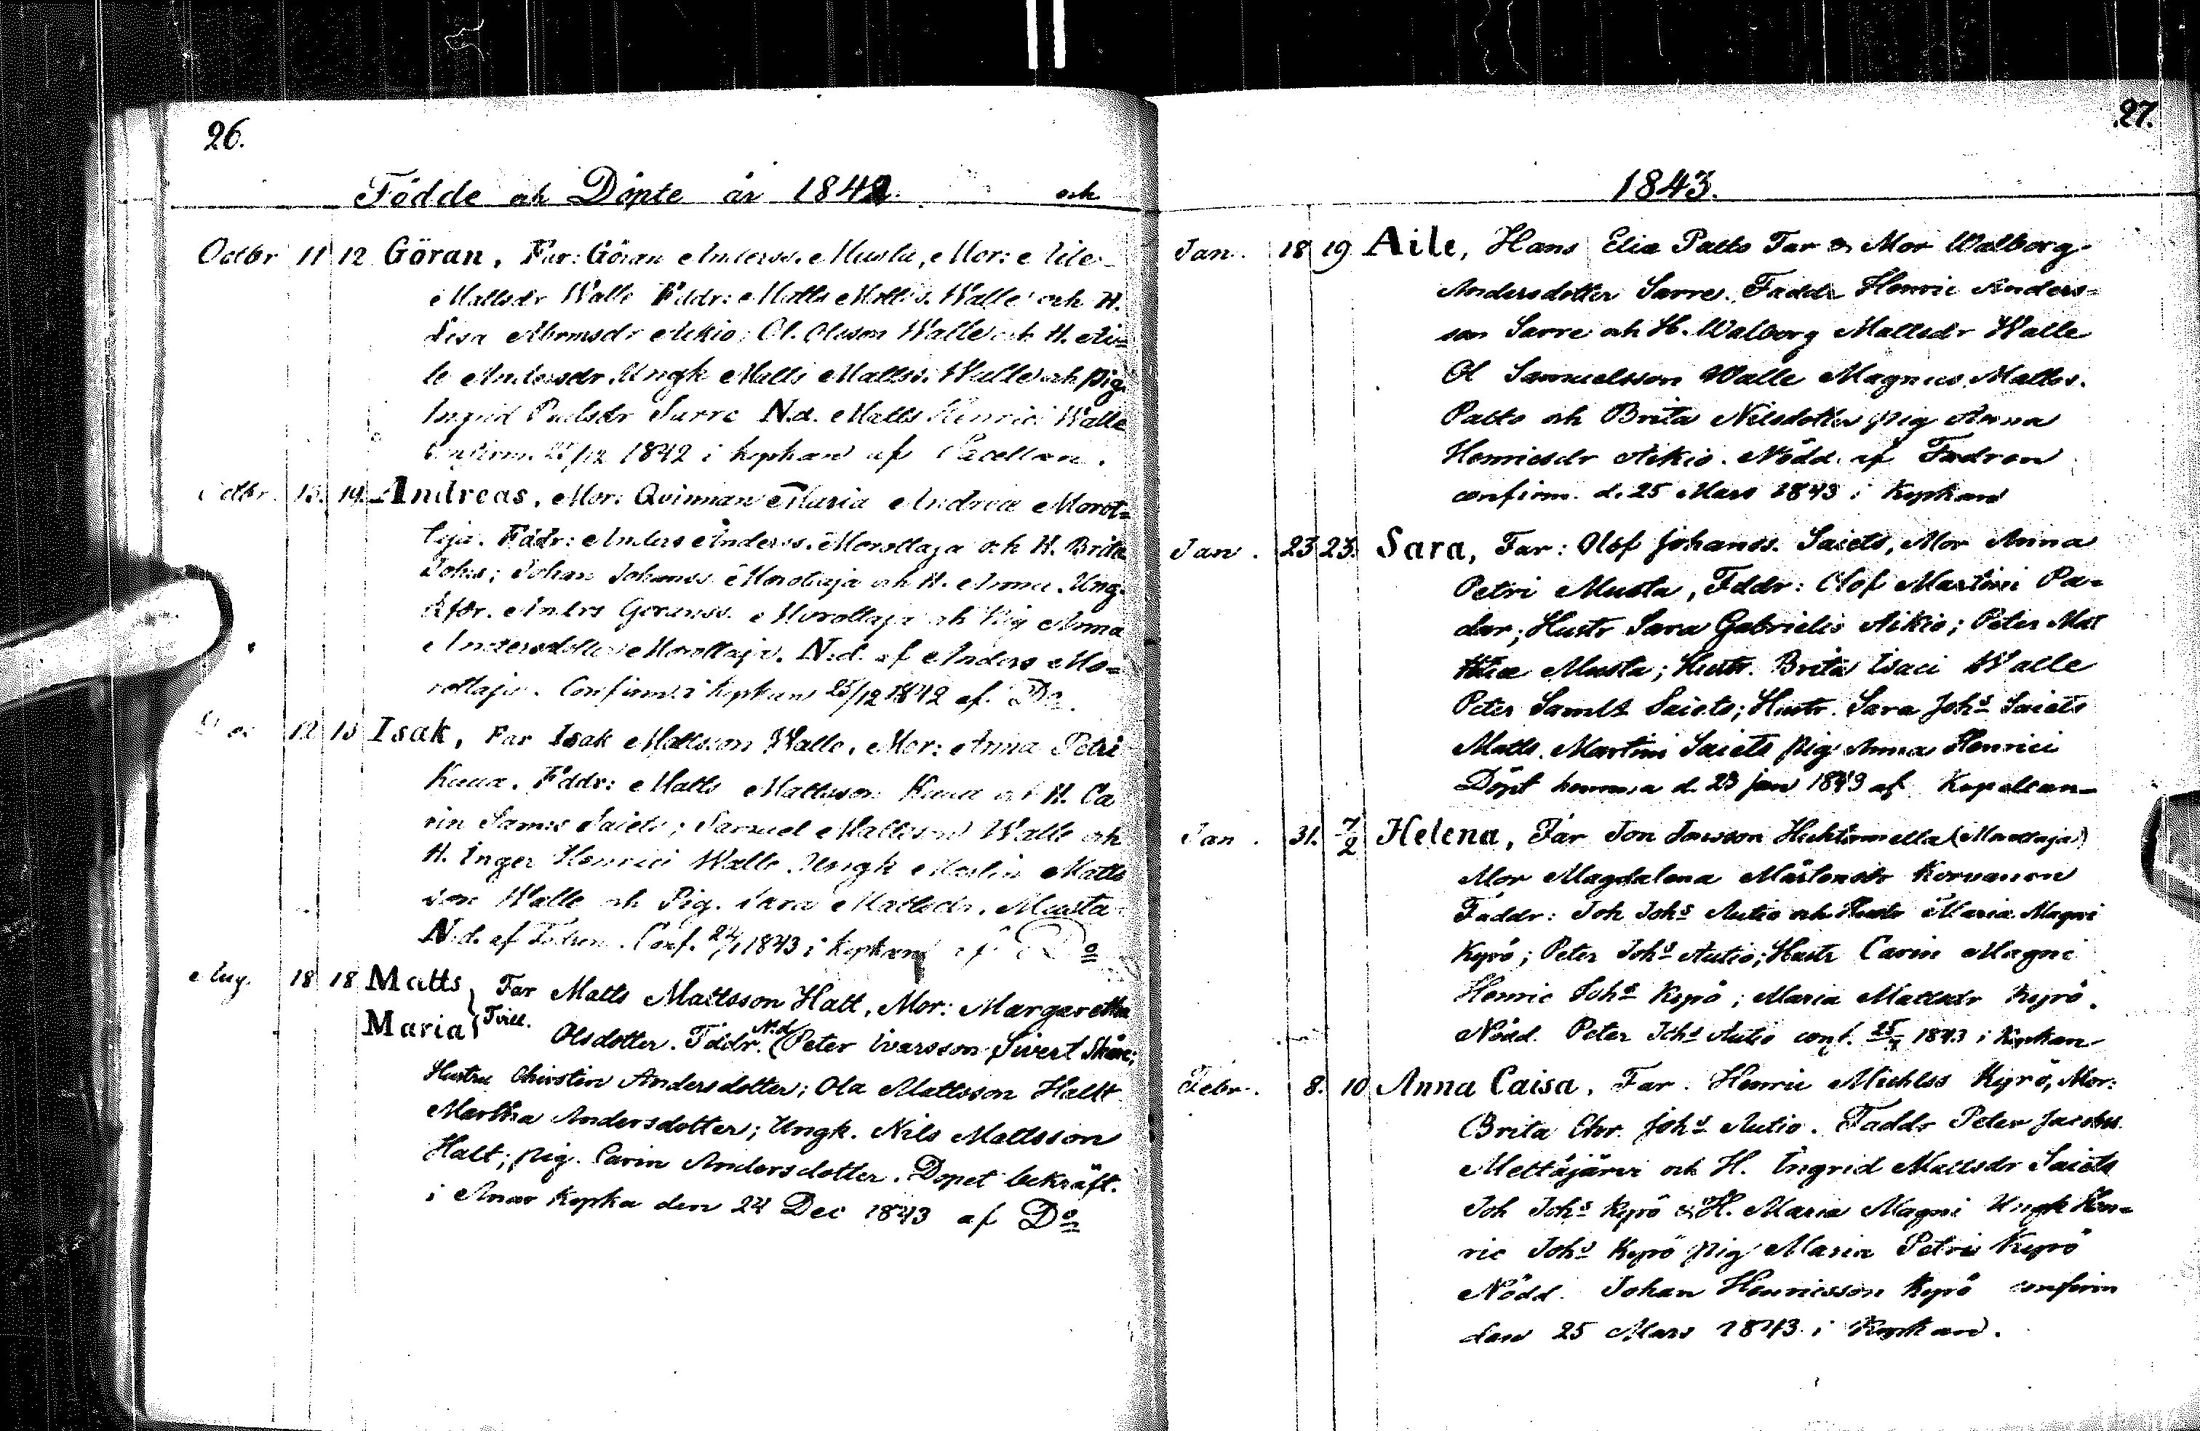 26.
Födde och Döpte år 1842. och
Octbr 11 12 Göran, Far: Göran Anderss. Musta, Mor: Aile
Mattsdr Walle Fddr: Matts Matts. Walle och H.
Lisa Abramsdr Aikio; Ol. Olsson Walle och H. Ai=
le Andersdr. Ungk Matts Mattss. Walle och pig.
Ingrid Paulsdr Sarre N.d. Matts Henrici Walle
Confirm. 25/12 1842 i kyrkan af Pacellan.
Octbr. 19. Andreas, Mor: Qvinnan Maria Andreæ Morot=
taja. Fddr: Anders Anderss. Morottaja och H. Brita
Johs; Johan Johanss. Morottaja och H. Anna. Ung.
Anders Göranss. Morottaja och Pig Anna
Andersdotter Morottaja. N.d. af Anders Mo=
rottaja. Confirm. i kyrkan 25/12 1842 af. Do.
12 13 Isak, Far Isak Mattsson Walle, Mor: Anna Petri
Kuua. Fddr: Matts Mattsson Kuua och H. Ca
rin Saiets; Samuel Mattsson Walle och
H. Inger Henrici Walle. Ungk Martin Matts
son Walle och Pig. Sara Mattsdr. Musta
N.d. af Fadren. Conf. 24/1 1843 i kyrkan af Do
Aug. 18 18 Matts Far Matts Mattsson Halt, Mor: Margaretha
Maria Tvill. Olsdotter. Fddr. N:d (Peter Ivarsson Sivert
Hustru Christin Andersdotter; Ola Mattsson Halt
Martha Andersdotter; Ungk. Nils Mattsson
Halt; pig. Carin Andersdotter. Dopet bekräft.
i Anar Kyrka den 24 Dec 1843 af Do
27.
1843.
Jan. 18 19 Aile, Hans Eliæ Patto Far & Mor Walborg
Andersdotter Sarre. Faddr Henric Anders=
son Sarre och H. Walborg Mattsdr Walle
Ol Samuelsson Walle Magnus Mattss.
Patto och Brita Nilsdotter pig Anna
Henricsdr Aikio. Nödd. af Fadren
confirm. d. 25 Mars 1843 i Kyrkan
Jan. 23 23. Sara, Far: Olof Johanss. Saiets, Mor Anna
Petri Musta, Fddr: Olof Martini Pa=
dar; Hustr Sara Gabrielis Aikio; Peter Mat
thiæ Musta; Hustr. Brita Isaci Walle
Peter Samls Saiets; Hustr. Sara Johs Saiets
Matts. Martini Saiets pig Anna Henrici
Döpt hemma d. 23 jan 1843 af Kapellan
Jan. 31. 7/2 Helena, Far Jon Huhtamella (Murtaja)
Mor Magdalena Mårtensdr Korvanen
Faddr: Joh Johs Autio och Hustr Maria Magni
Kyrö; Peter Johs Autio; Hustr Carin Magni
Henric Johs Kyrö; Maria Mattsdr Kyrö.
Nödd. Peter Johs Autio conf. 1843 i Kyrkan
Febr. 8. 10 Anna Caisa. Far. Henric Michlss Kyrö, Mor:
Brita Chr. Johs Autio. Faddr Peter Jacobss
Mettäjärvi och H. Ingrid Mattsdr Saiets
Joh Johs Kyrö & H. Maria Magni Ungk Hen=
ric Johs Kyrö pig Maria Petri Kyrö
Nödd. Johan Henricsson Kyrö confirm
dan 25 Mars 1843 i Kyrkan.